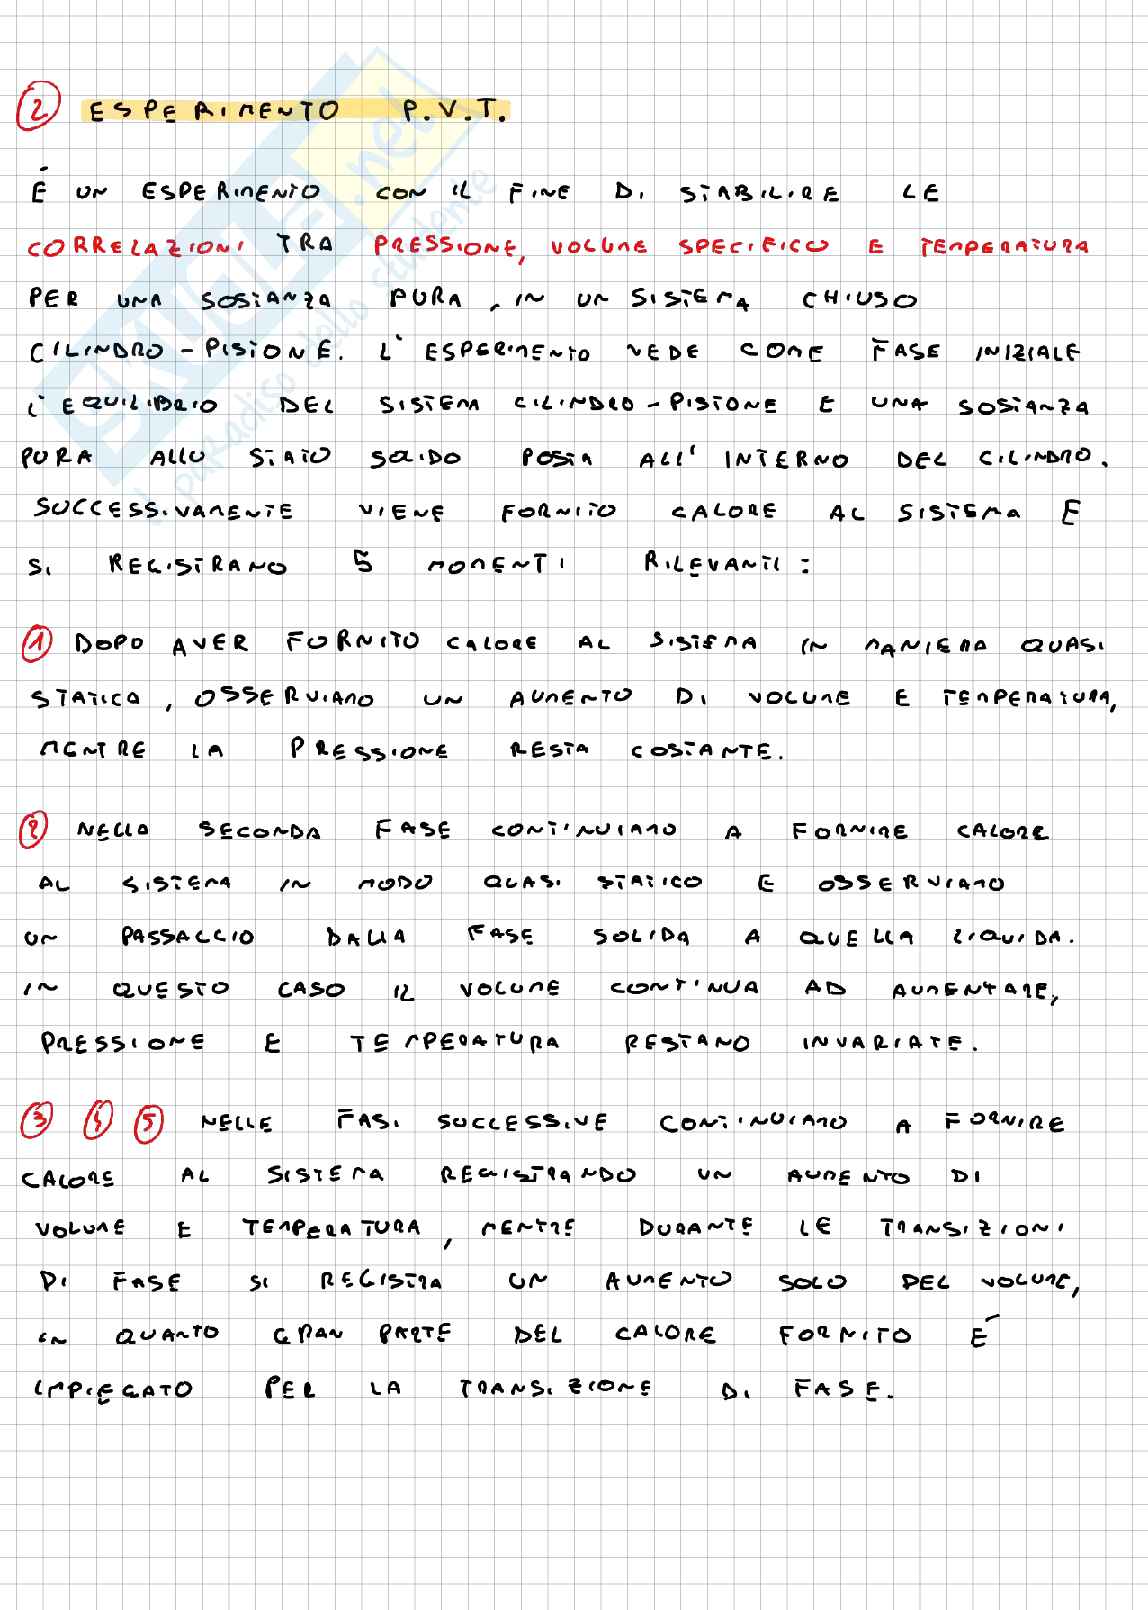 2 ESPERIMENTO P.V.T.
É UN ESPERIMENTO CON IL FINE DI STABILIRE LE
CORRELAZIONI TRA PRESSIONE, VOLUME SPECIFICO E TEMPERATURA
PER UNA SOSTANZA PURA, IN UN SISTEMA CHIUSO
CILINDRO-PISTONE. L'ESPERIMENTO VEDE COME FASE INIZIALE
L'EQUILIBRIO DEL SISTEMA CILINDRO-PISTONE E UNA SOSTANZA
PURA ALLO STATO SOLIDO POSTA ALL'INTERNO DEL CILINDRO.
SUCCESSIVAMENTE VIENE FORNITO CALORE AL SISTEMA E
SI REGISTRANO 5 MOMENTI RILEVANTI:
1 DOPO AVER FORNITO CALORE AL SISTEMA IN MANIERA QUASI
STATICA, OSSERVIAMO UN AUMENTO DI VOLUME E TEMPERATURA,
MENTRE LA PRESSIONE RESTA COSTANTE.
2 NELLA SECONDA FASE CONTINUIAMO A FORNIRE CALORE
AL SISTEMA IN MODO QUASI STATICO E OSSERVIAMO
UN PASSAGGIO DALLA FASE SOLIDA A QUELLA LIQUIDA.
IN QUESTO CASO IL VOLUME CONTINUA AD AUMENTARE,
PRESSIONE E TEMPERATURA RESTANO INVARIATE.
3 4 5 NELLE FASI SUCCESSIVE CONTINUIAMO A FORNIRE
CALORE AL SISTEMA REGISTRANDO UN AUMENTO DI
VOLUME E TEMPERATURA, MENTRE DURANTE LE TRANSIZIONI
DI FASE SI REGISTRA UN AUMENTO SOLO DEL VOLUME,
IN QUANTO GRAN PARTE DEL CALORE FORNITO É
IMPIEGATO PER LA TRANSIZIONE DI FASE.
SKUOLA.net
il paradiso dello studente